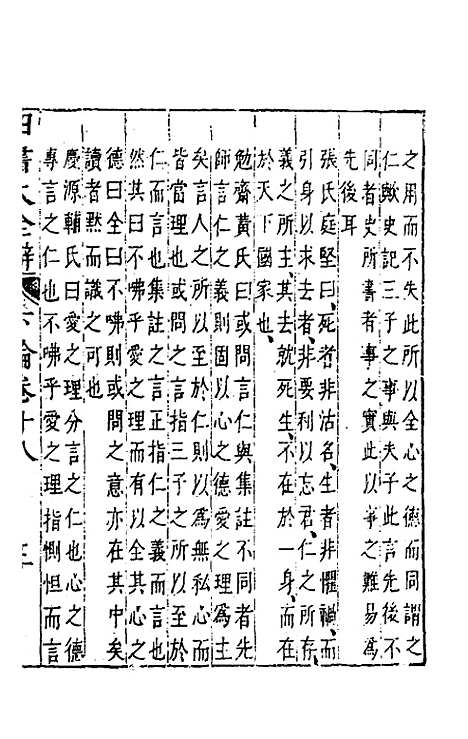 之用而不失此所以全心之德而同謂之
仁歟史記三子之事與夫子此言先後不
同者史所書者事之實此以事之難易爲
先後耳
張氏庭堅曰死者非沽名生者非懼禍而
引身以求去者非要利以忘君仁之所存
義之所主其去就死生不在於一身而在
於天下國家也
勉齋黃氏曰或問言仁與集註不同者先
師言仁之義則固以心之德愛之理爲主
矣言人之所以至於仁則以爲無私心而
皆當理也或問之言指三子之所以至於
仁而言也集註之言正指仁之義而言也
然其曰不咈乎愛之理而有以全其心之
德曰全曰不咈則或問之意亦在其中矣
讀者默而識之可也
慶源輔氏曰愛之理分言之仁也心之德
專言之仁也不咈乎愛之理指惻怛而言
四書大全辯 下論卷十八 三